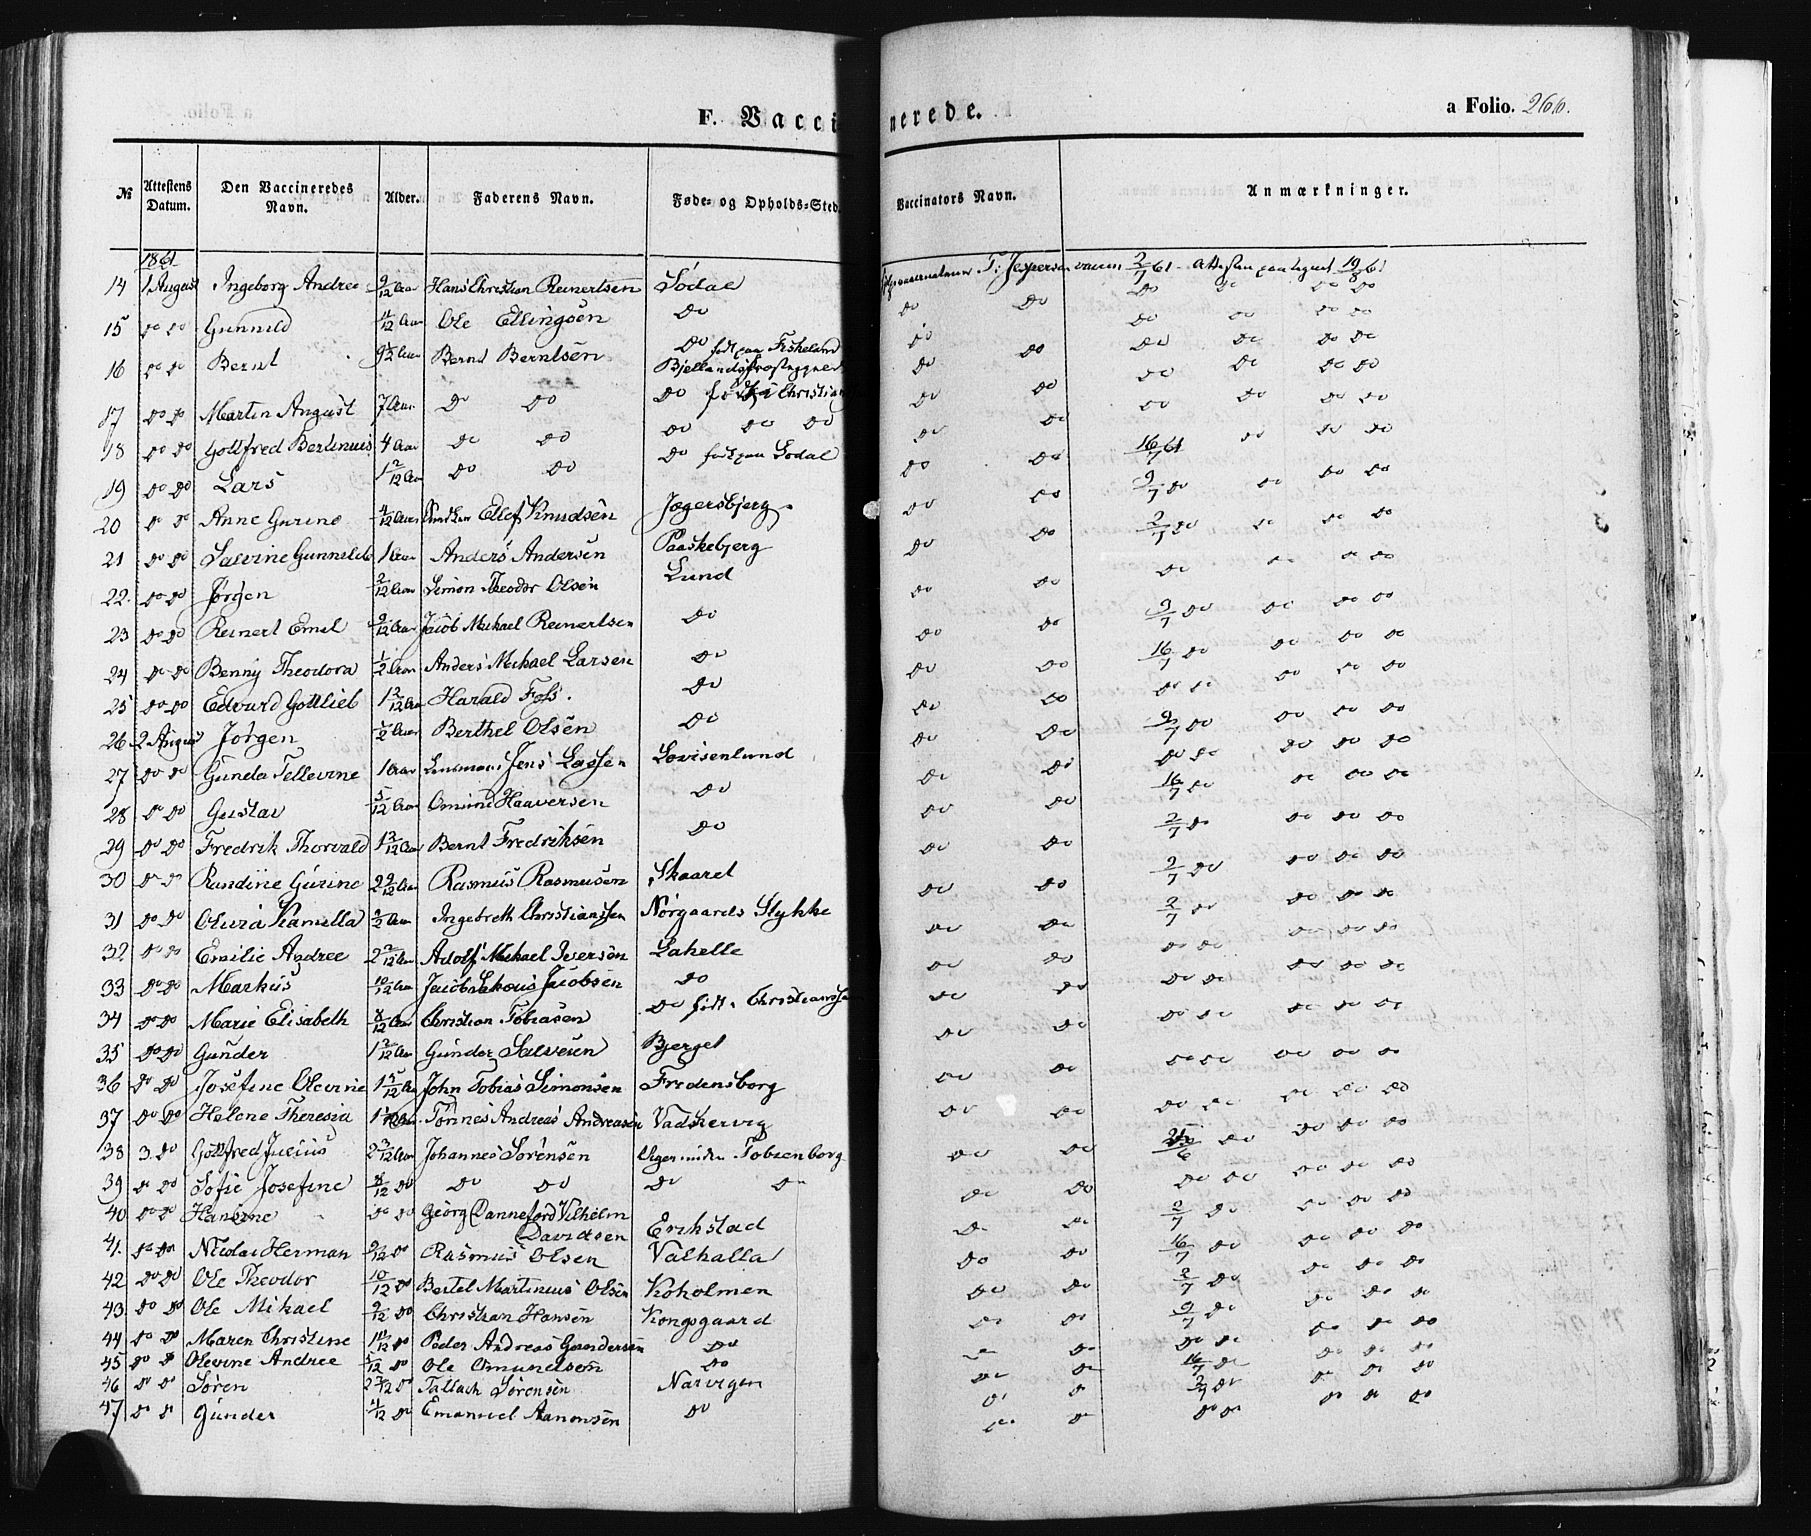 F. Vaccinerede.
a Folio. 266.
№ Attestens Datum. Den Vaccineredes Navn. Alder. Faderens Navn. Føde- og Opholds-Sted. Vaccinators Navn. Anmærkninger.
1861
14 1 August Ingeborg Andrea 9/12 Aar Hans Christian Reinertsen Sødal T. Jespersen vaccin 2/7 61 Attesten paategnet 19/8 61
15 do do Gunnild 11/12 Aar Ole Ellingsen do do do do do do do
16 do do Bernt Aar Bernt Berntsen do født paa Fiskeland
Bjellands Præstegjeld do do do do do do
17 do do Martin August 7 Aar do do do født i Christian do do do do do do
18 do do Gottfred Bertinius 4 Aar do do do do do do do
19 do do Lars 1 2/12 Aar do do do født paa Sødal do do 16/7 61 do do do
20 do do Anne Gurine 4/12 Aar Ellef Knudsen Jægersbjerg do do 9/7 do do do do
21 do do Salvine Gunnild 1 Aar Anders Andersen Paaskebjerg do do 2/7 do do do do
22. do do Jørgen 2/12 Aar Simon Theodor Olsen Lund do do do do do do
23 do do Reinert Emel 9/12 Aar Jacob Michael Reinertsen do do do 9/7 do do do do
24 do do Benny Theodora 1/2 Aar Anders Michael Larsen do do do 16/7 do do do do
25 do do Edvard Gottlieb 1 3/12 Aar Harald Foss. do do do do do do do do
26 2 August Jørgen 1/2 Aar Berthel Olsen do do do 9/7 do do do do
27 do do Gunda Tellevine 1 Aar Jens Lassen Lovisenlund do do do do do do do
28 do do Gustav 5/12 Aar Omund Haaversen do do do 16/7 do do do do
29 do do Fredrik Thorvald 1 3/12 Aar Bernt Fredriksen do do do 2/7 do do do do
30 do do Randine Gurine 2 9/12 Aar Rasmus Rasmusen Skaaret do do 2/7 do do do do
31 do do Olivia Kamilla 1/2 Aar Ingebreth Christianssen Nørgaards Stykke do do 2/7 do do do do
32 do do Emilie Andrea 2 2/12 Aar Adolf Mikael Iversen Lahelle do do do do do do do
33 do do Markus 10/12 Aar Jacob Jacobsen do do do do do do do do
34 do do Marie Elisabeth 8/12 Aar Christian Tobiasen do født i Christianssand do do do do do do do
35 do do Gunder 1 2/12 Aar Gunder Salvesen Bjerget do do do do do do do
36 do do Josefine Olevine 1 5/12 Aar John Tobias Simonsen Fredensborg do do do do do do do
37 do do Helene Theresia Tønnes Andreas Andreasen Vadskervig do do do do do do
38 3. do Gottfred Julius 2 3/12 Aar Johannes Sørensen Tobienborg do do do do do do
39 do do Sofie Josefine 8/12 do do do do do do do do do do do do
40 do do Hansine do do Georg Danneford Vilhelm
Davidsen Erikstad do do 2/7 do do do do
41. do do Nicolai Herman 9/12 do Rasmus Olsen Valhalla do do 16/7 do do do do
42 do do Ole Theodor 10/12 do Bertel Martinius Olsen Koholmen do do 2/7 do do do do
43 do do Ole Mikael 9/12 do Christian Hansen Kongsgaard do do 9/7 do do do do
44 do do Maren Christine do Peder Andreas Gundersen do do do do do do do do
45 do do Olevine Andrea do Ole Omundsen do do do 16/7 do do do do
46 do do Søren 2 3/12 do Tallach Sørensen Narvigen do do 2/7 do do do do
47 do do Gunder 4/12 do Emanuel Aanonsen do do do do do do do do